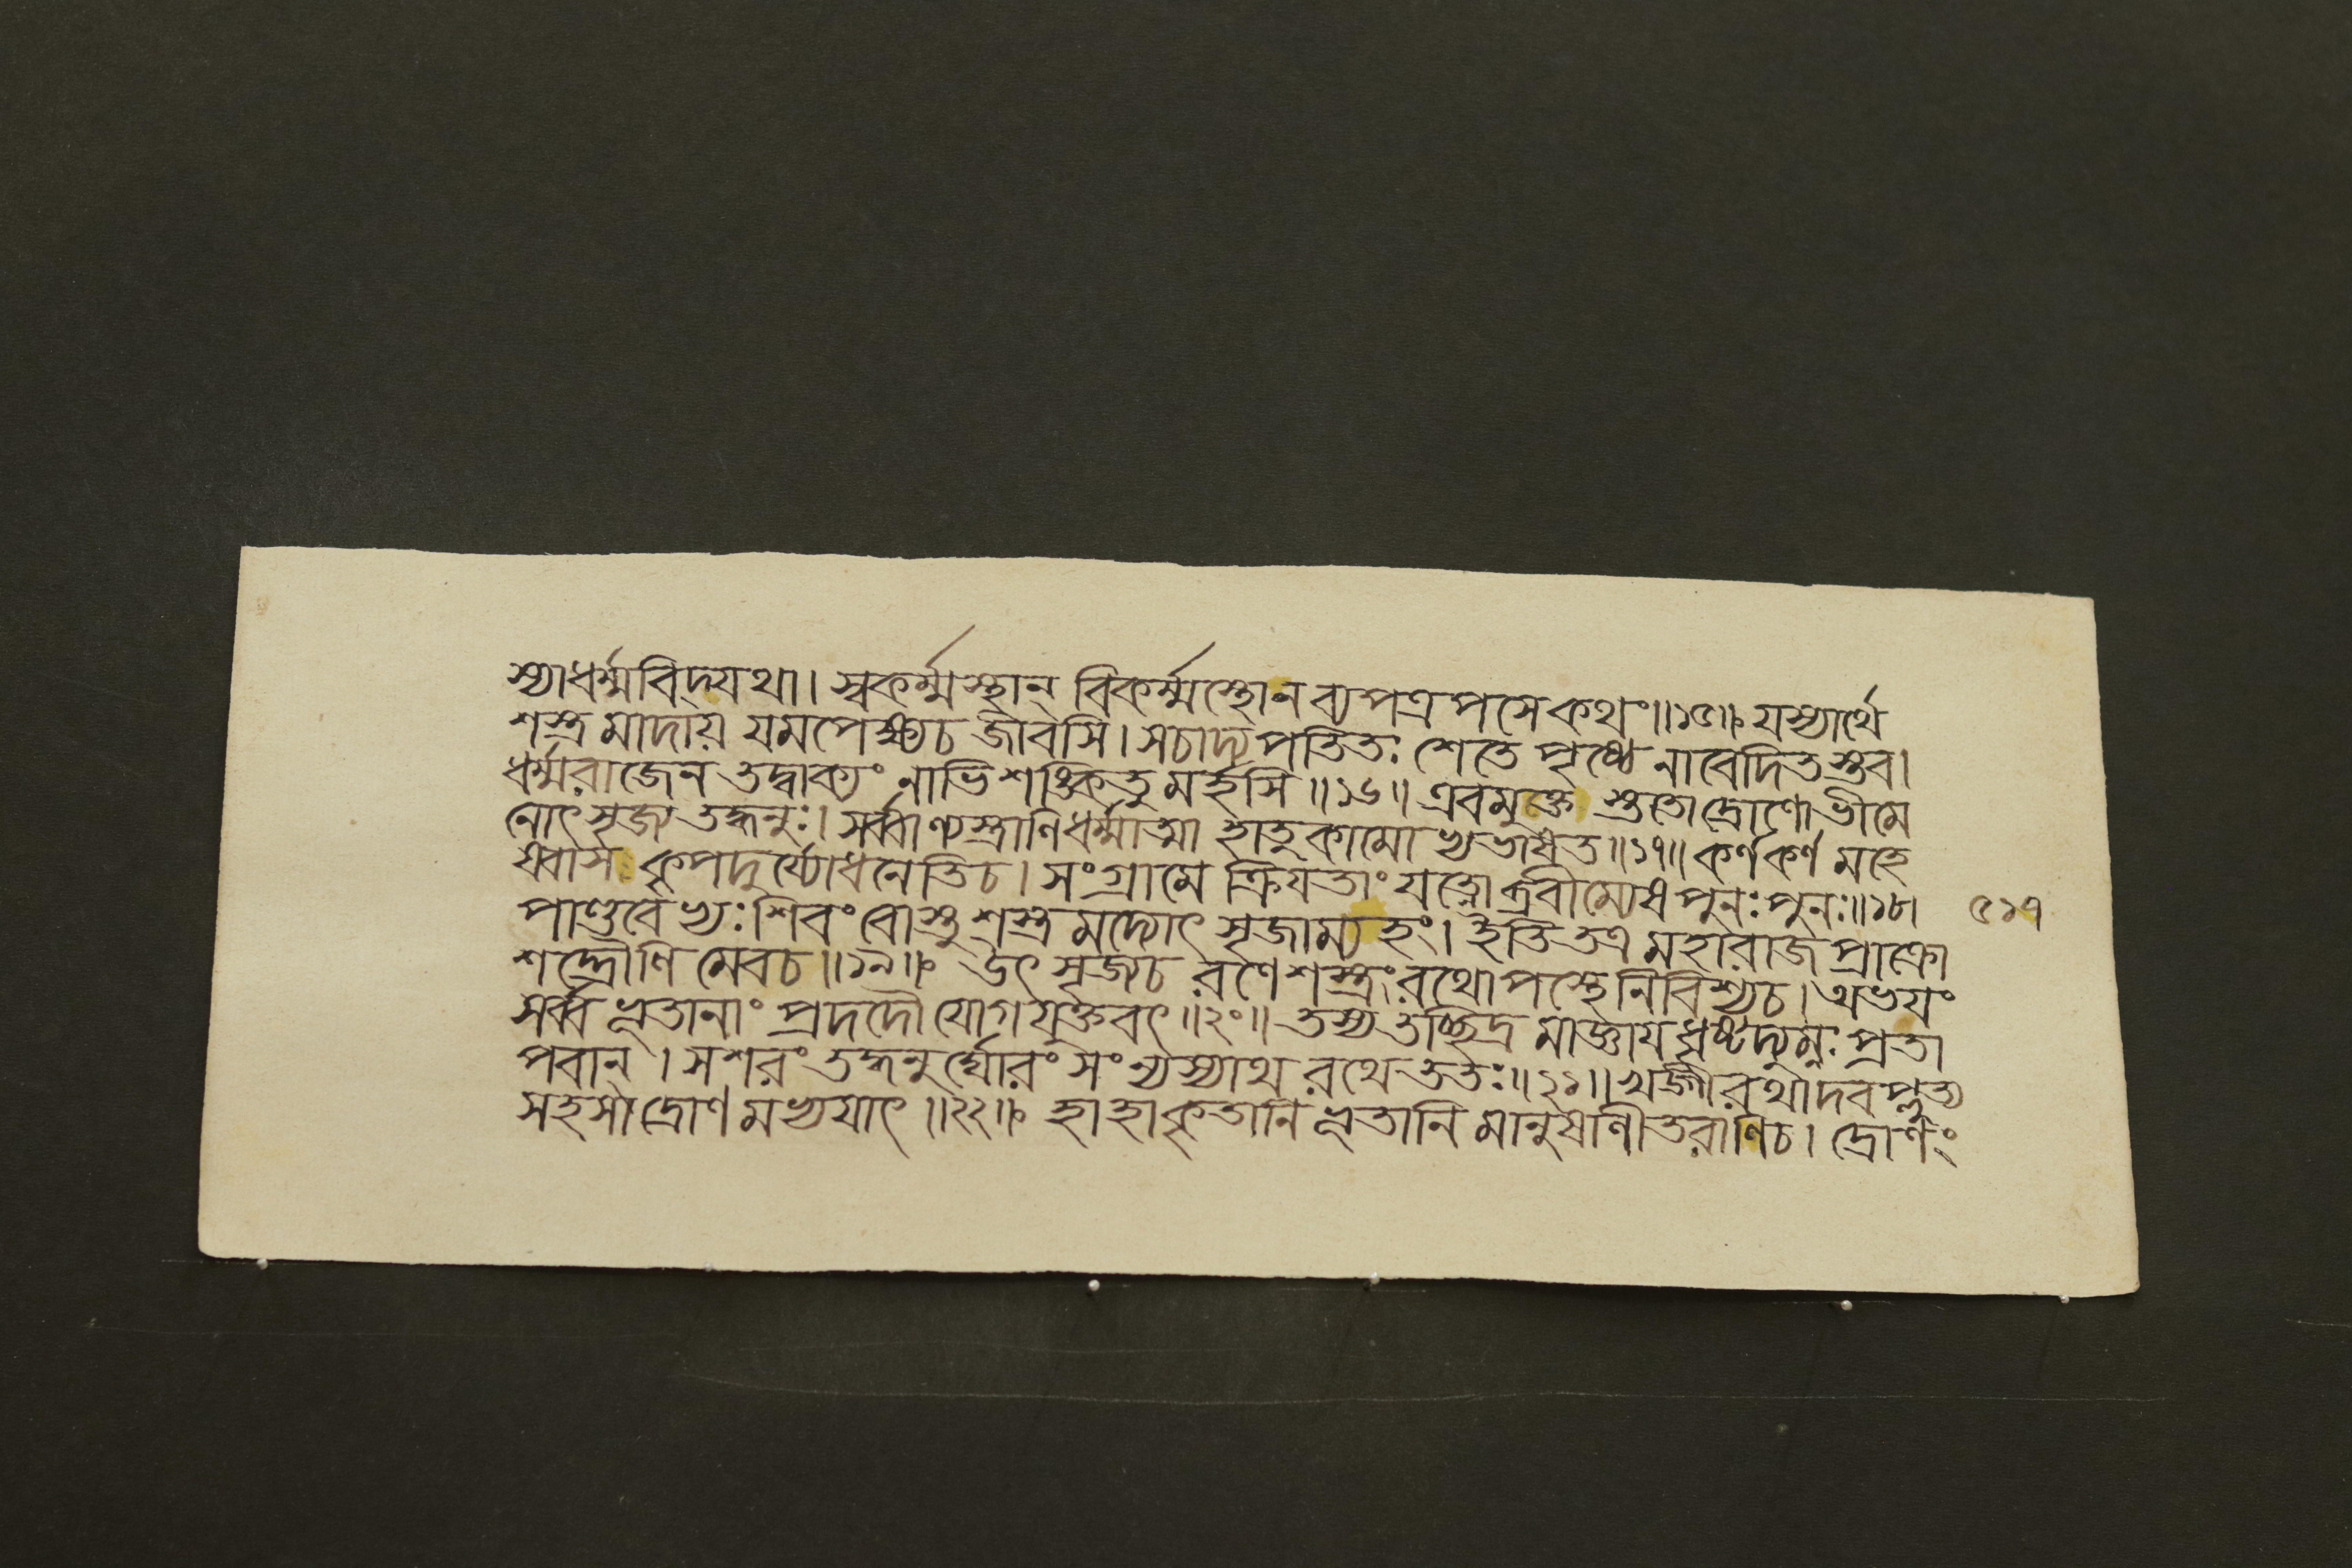 স্যাধর্ম্মবিদ্যথা। স্বকর্ম্মস্থান্ বিকর্ম্মস্থোনব্যপত্রপসেকথং॥১৫॥ যস্যার্থে
শস্ত্রমাদায় যমপেক্ষ্যচ জীবসি। সচাদ্য পতিতঃ শেতে পৃষ্ঠে নাবেদিতস্তব।
ধর্ম্মরাজেন তদ্বাক্যং নাভিশঙ্কিতুমর্হসি॥১৬॥ এবমুক্ত স্ততোদ্রোণোভীমে
নোৎসৃজ্য তদ্ধনুঃ। সর্ব্বাণ্যস্ত্রাণিধর্ম্মাত্মা হাতুকামোভ্যভাষত॥১৭॥ কর্ণকর্ণ মহে
ষ্বাস কৃপদুর্য্যোধনেতিচ। সংগ্রামে ক্রিয়তাং যত্নোব্রবীম্যেষ পুনঃপুনঃ॥১৮।
পাণ্ডবেভ্যঃ শিবং বোস্তু শস্ত্রমদ্যোৎ সৃজাম্যহং। ইতি তত্র মহারাজ প্রাক্রো
শদ্দ্রৌণিমেবচ॥১৯॥ উৎসৃজ্যচ রণেশস্ত্রং রথোপস্থেনিবিশ্যচ। অভয়ং
সর্ব্বভূতানাং প্রদদৌ যোগযুক্তবৎ॥২০॥ তস্য তচ্ছিদ্রমাজ্ঞায় ধৃষ্টদ্যুম্নঃ প্রতা
পবান্। সশরং তদ্ধনুর্ঘোরং সংন্যস্যাথ রথে ততঃ॥২১॥ খড়্গীরথাদবপ্লুত্য
সহসাদ্রোণমভ্যযাৎ॥২২॥ হাহাকৃতানি ভূতানি মানুষাণীতরাণিচ। দ্রোণং
৫১৭